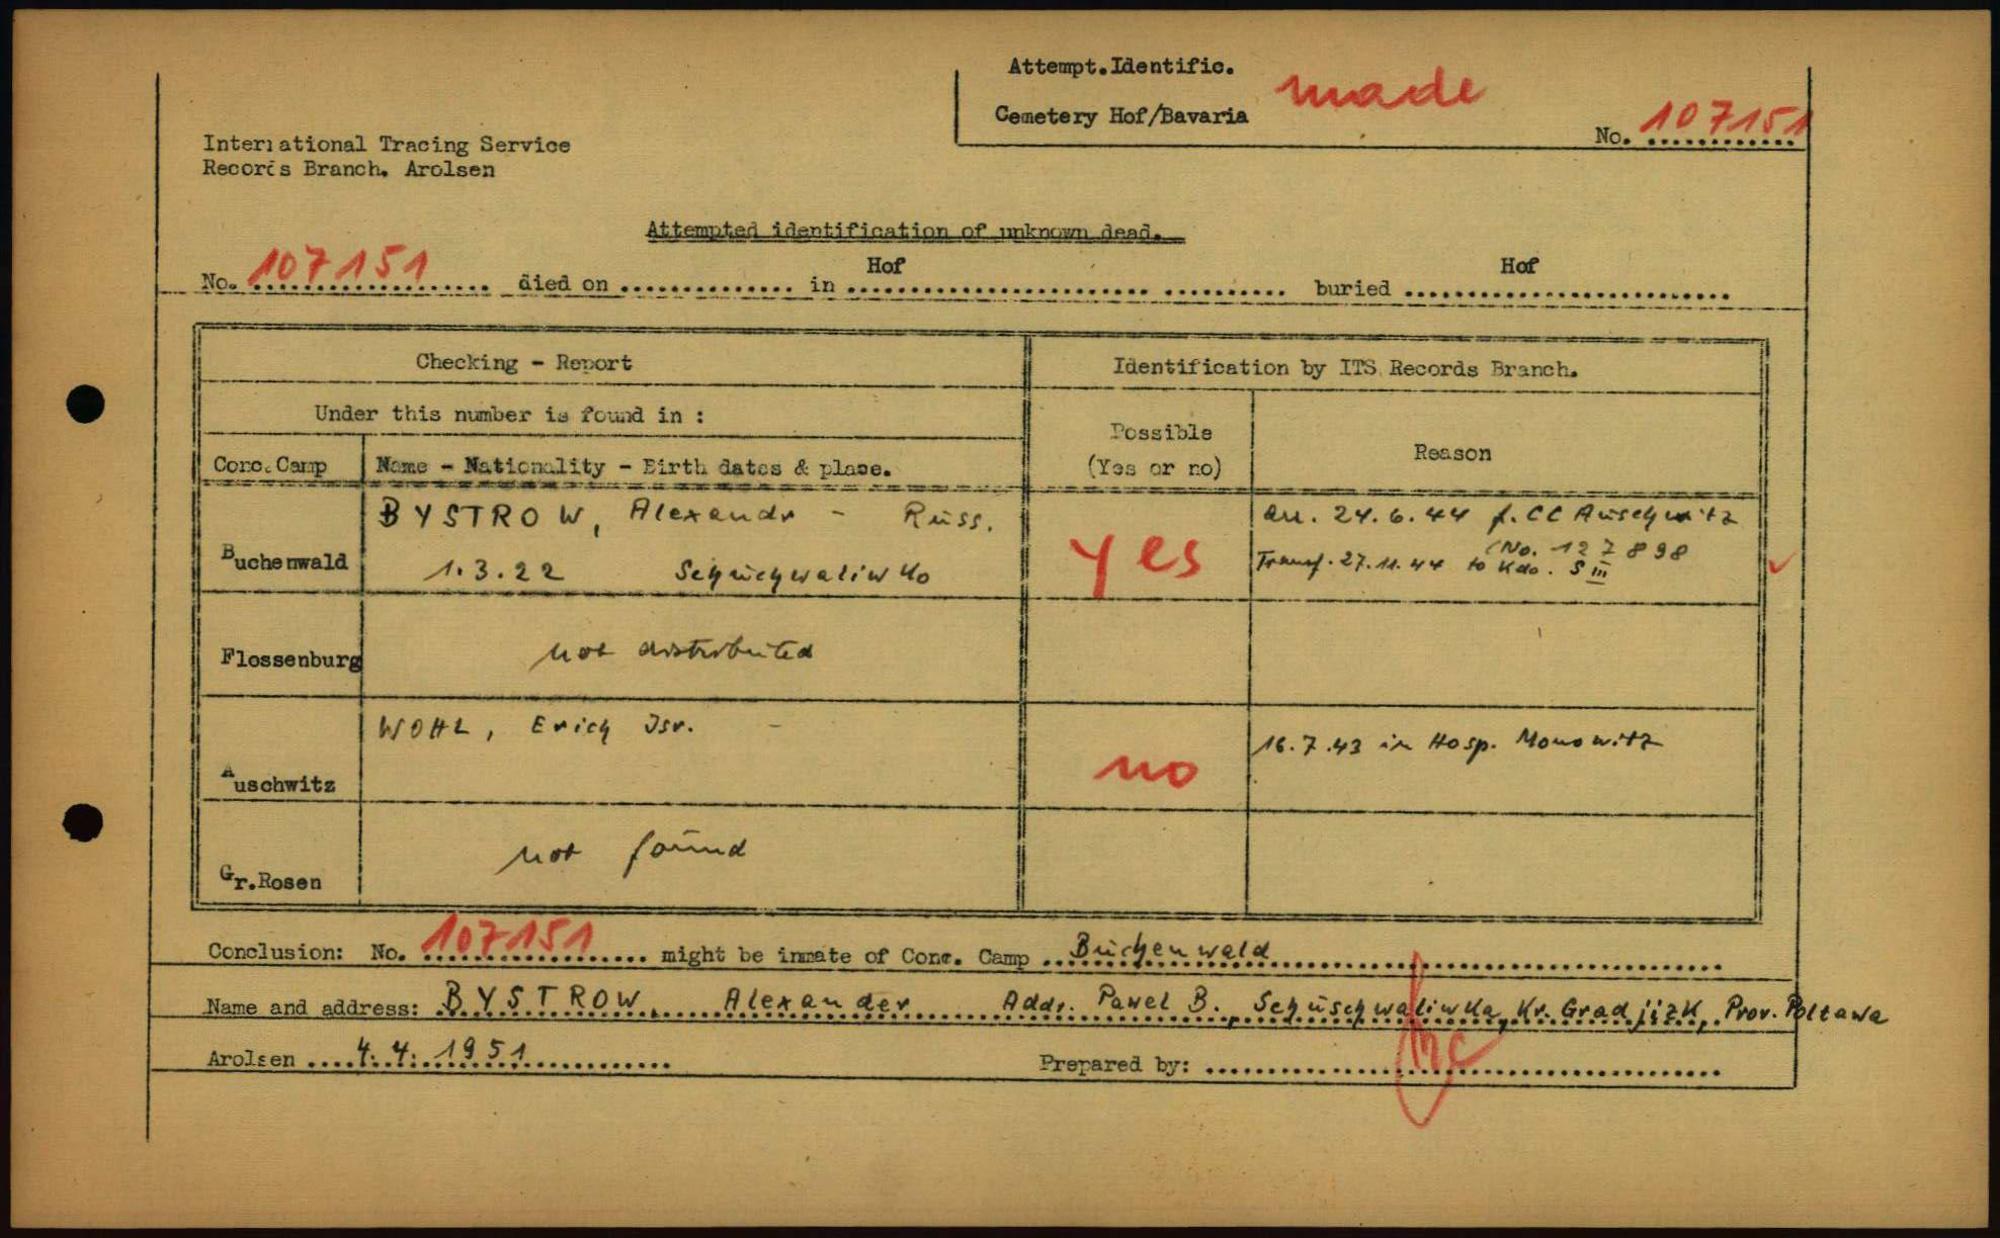 Attempt.Identific. made
Cemetery Hof/Bavaria
No. 107151
International Tracing Service
Records Branch. Arolsen
Attempted identification of unknown dead.
No. 107151 died on ............. in Hof ............. buried Hof
Checking - Report
Identification by ITS Records Branch.
Under this number is found in :
Possible
(Yes or no)
Reason
Conc.Camp
Name - Nationality - Birth dates & place.
Buchenwald
BYSTROW, Alexandr - Russ.
1.3.22 Schuschwaliwko
yes
arr. 24.6.44 f. CC Auschwitz
(No. 127898
Transf. 27.11.44 to Kdo. S III
Flossenburg
not distributed
Auschwitz
WOHL, Erich Isr. -
no
16.7.43 in Hosp. Monowitz
Gr.Rosen
not found
Conclusion: No. 107151 might be inmate of Conc. Camp Buchenwald
Name and address: BYSTROW, Alexander Addr. Pawel B., Schuschwaliwka, Kr. Gradjizk, Prov. Poltawa
Arolsen 4.4.1951
Prepared by: